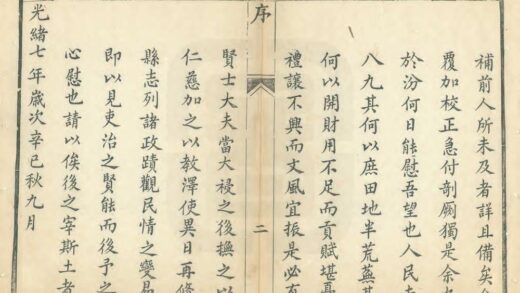 補前人所未及者詳且備矣
覆加校正急付剞劂獨是余
於汾何日能慰吾望也人民
八九其何以庶田地半荒蕪其
何以開財用不足而貢賦堪
禮讓不興而文風宜振是必有
序
二
賢士大夫當大祲之後撫之以
仁慈加之以教澤使異日再修
縣志列諸政蹟觀民情之變易
即以見吏治之賢能而後予之
心慰也請以俟後之宰斯土者
光緒七年歲次辛巳秋九月